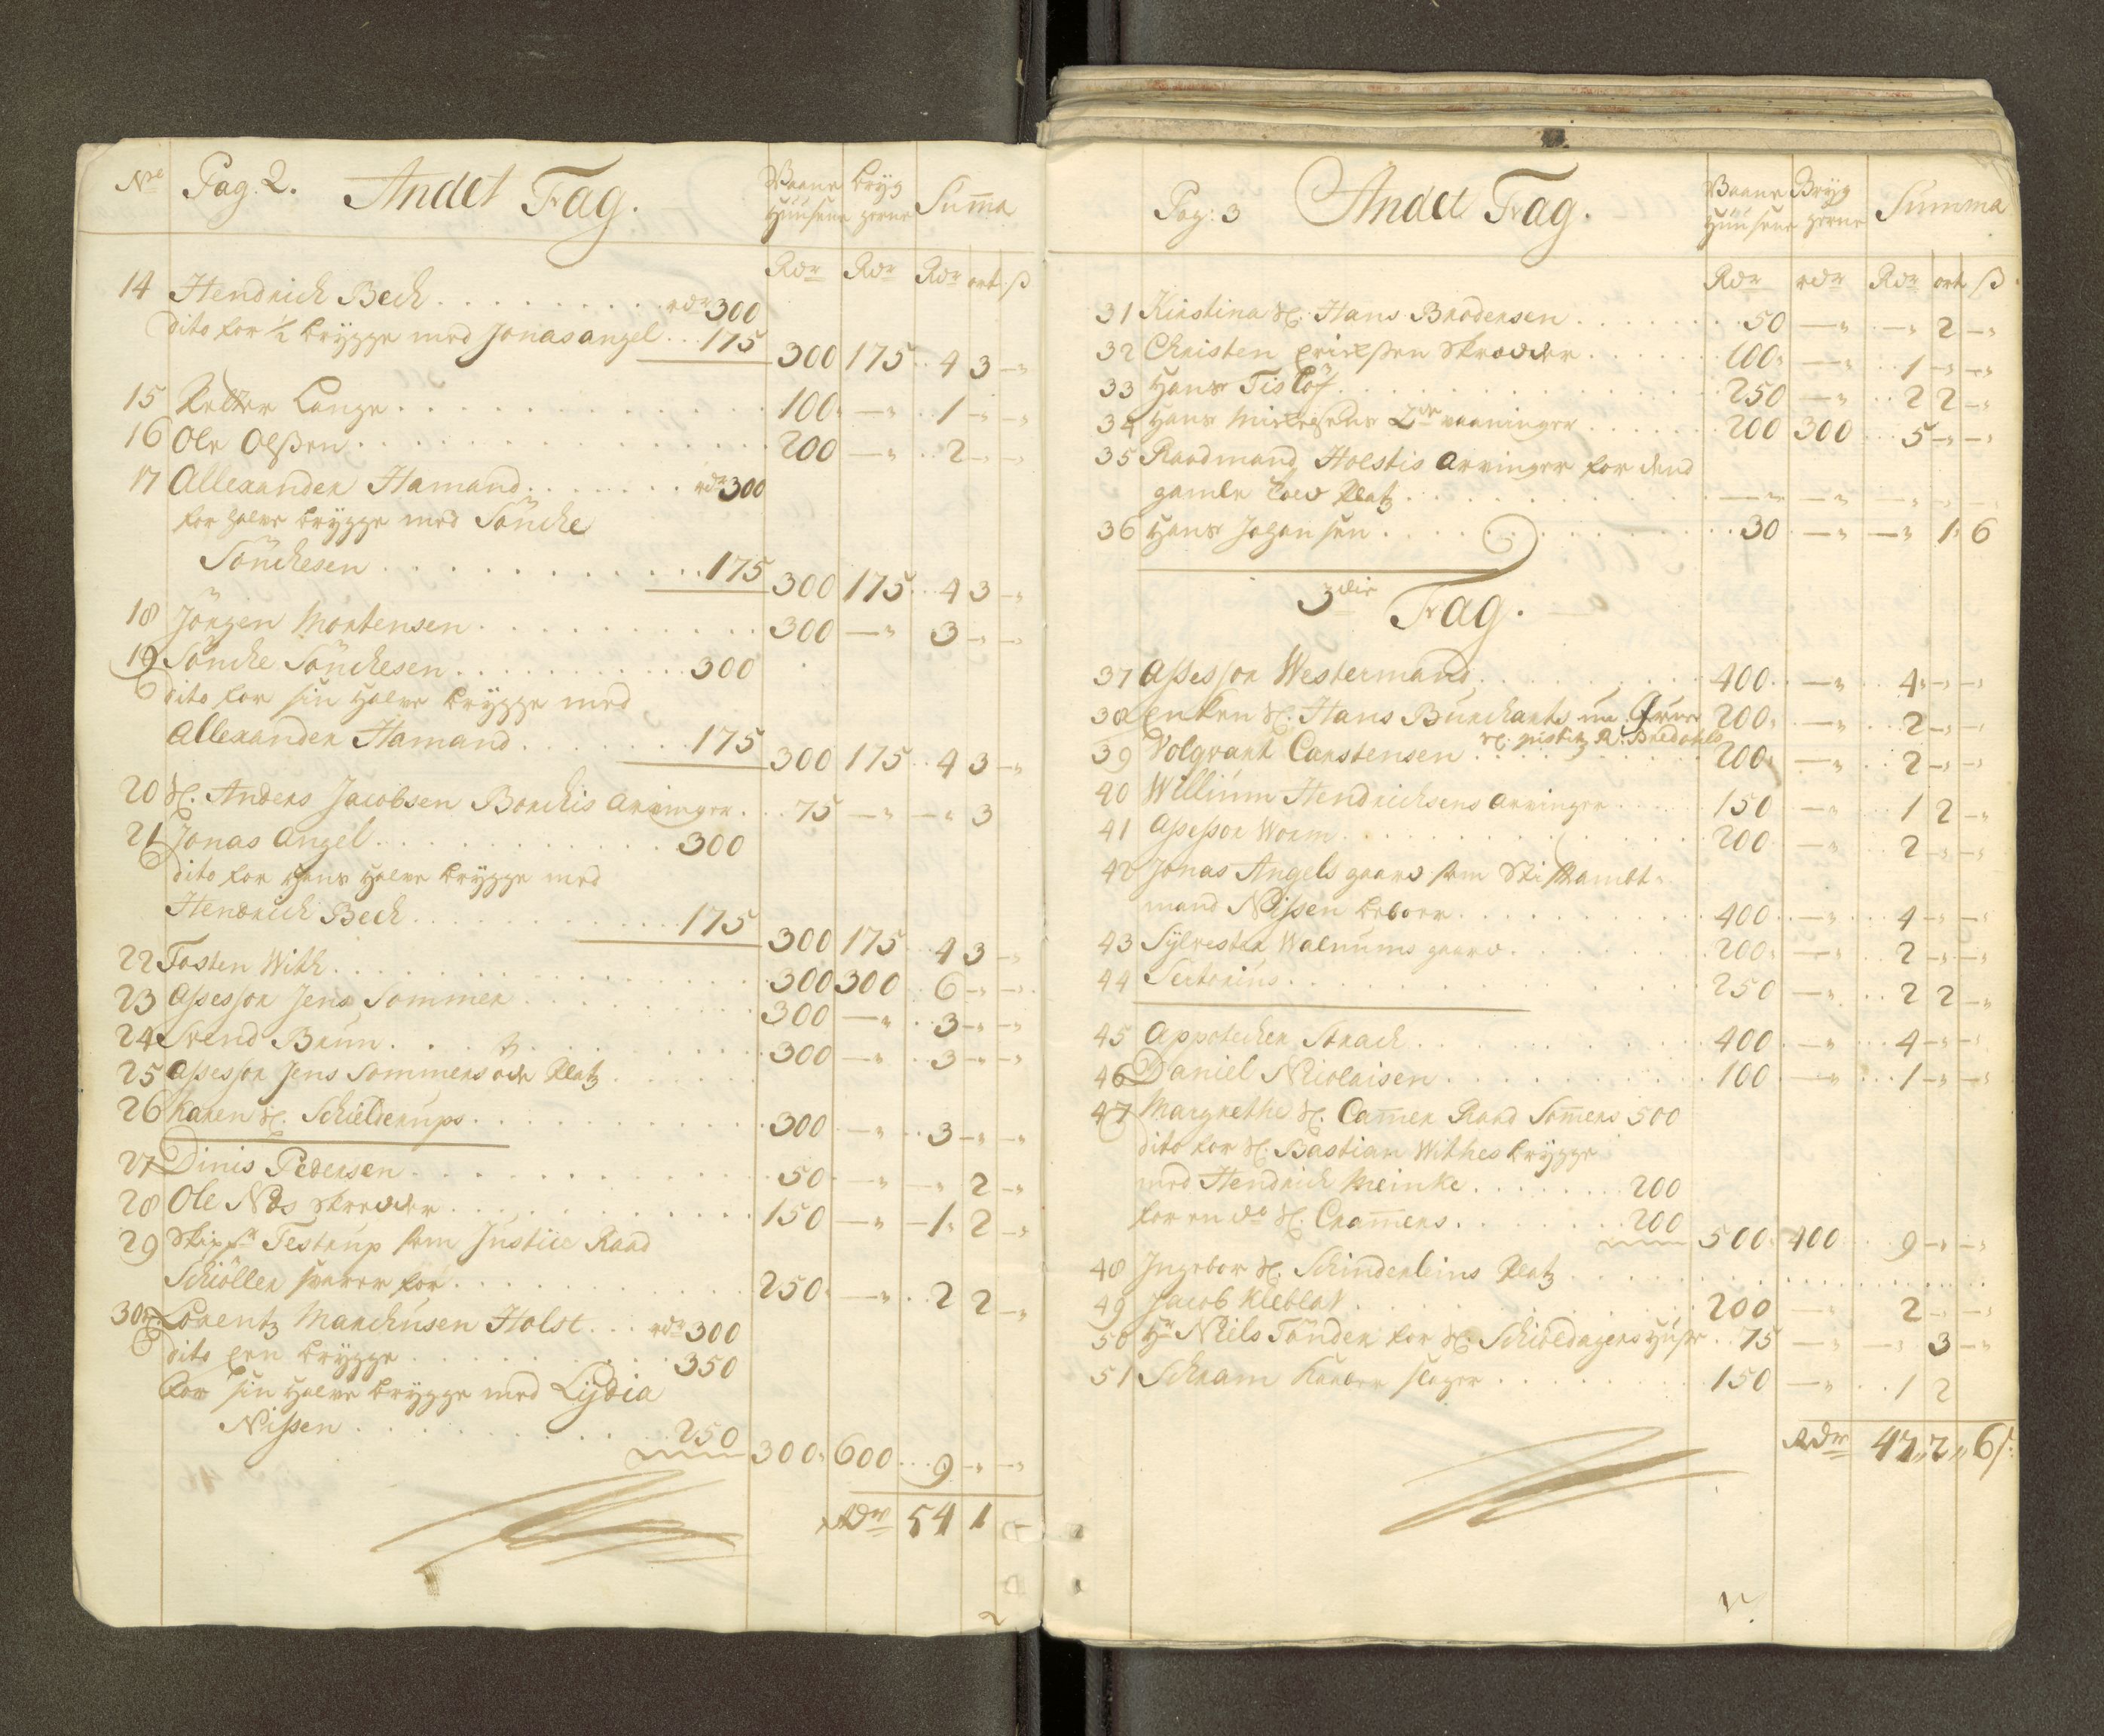 No Pag. 2. Andet Fag. Vaane Huusene Bryggerne Summa
Rdr Rdr Rdr ort ß
14 Hendrich Bech . . . rdr 300
dito for ½ brygge med Jonas angel . . 175 300 175 4 3 –
15 Petter Lange . . . 100 – 1 – –
16 Ole Olßen . . . 200 – 2 – –
17 Allexander Hamand . . . rdr 300
for halve brygge med Söncke
Sönckesen . . . 175 300 175 4 3 –
18 Jörgen Mortensen . . . 300 – 3 – –
19 Söncke Sönckesen . . . 300
dito for sin halve brygge med
Allexander Hamand . . . 175 300 175 4 3 –
20 Sl. Anders Jacobsen Borchis arvinger . . 75 – – 3
21 Jonas Angel . . . 300
dito for hans halve brygge med
Hendrich Bech . . . 175 300 175 4 3 –
22 Tosten With . . . 300 300 6 – –
23 Assessor Jens Sommer . . . 300 – 3 – –
24 Svend Bruun . . . 300 – 3 – –
25 Assessor Jens Sommers øde Platz . . .
26 Karen Sl. Schielderups . . . 300 – 3 – –
27 Dinis Pedersen . . . 50 – – 2 –
28 Ole Næs skredder . . . 150 – 1 2 –
29 Skippr Testrup som Justice Raad
Schiöller svarer for . . . 250 – 2 2 –
30 Lorentz Marchusen Holst . . . rdr 300
dito een brygge . . . 350
for sin halve brygge med Lydia
Nissen . . . 250 300 600 9 – –
Rdr 54 1 –
2
Pag: 3 Andet Fag. Vaane Huusene Bryggerne Summa
Rdr rdr Rdr ort ß
31 Kirstina Sl. Hans Brodersen . . . 50 – – 2 –
32 Christen Erichßen skredder . . . 100 – 1 – –
33 Hans Tislöf . . . 250 – 2 2 –
34 Hans Michelsens 2de vaaninger . . . 200 300 5 – –
35 Raadmand Holstis arvinger for dend
gamle Platz . . . – – – – –
36 Hans Johansen . . . 30 – – 1 6
3die Fag.
37 Assessor Westermand . . . 400 – 4 – –
38 Enken Sl. Hans Burcharts 200 – 2 – –
Sl. Justitz R: Bredahls
39 Volqvart Carstensen . . . 200 – 2 – –
40 Willium Hendrichsens arvinger . . . 150 – 1 2 –
41 Assessor Worm . . . 200 – 2 – –
42 Jonas Angels gaard som Stiftsambt-
mand Nissen beboer . . . 400 – 4 – –
43 Sylvester Walnums gaard . . . 200 – 2 – –
44 Sertorius . . . 250 – 2 2 –
45 Appotecher Strach . . . 400 – 4 – –
46 Daniel Nicolaisen . . . 100 – 1 – –
47 Margrethe Sl. Camer Raad Somers 500
dito for Sl. Bastian Withes brygge
med Hendrich Meinke . . . 200
for en do Sl. Cramers . . . 200 500 400 9 – –
48 Ingebor Sl. Schinderleins Platz . . .
49 Jacob Kieblat . . . 200 – 2 – –
50 Hr Niels Tönder for Sl. Schioldagers Huse . . 75 – – 3 –
51 Schram Kaaber slager . . . 150 – 1 2
Rdr 47 „ 2 „ 6 ß